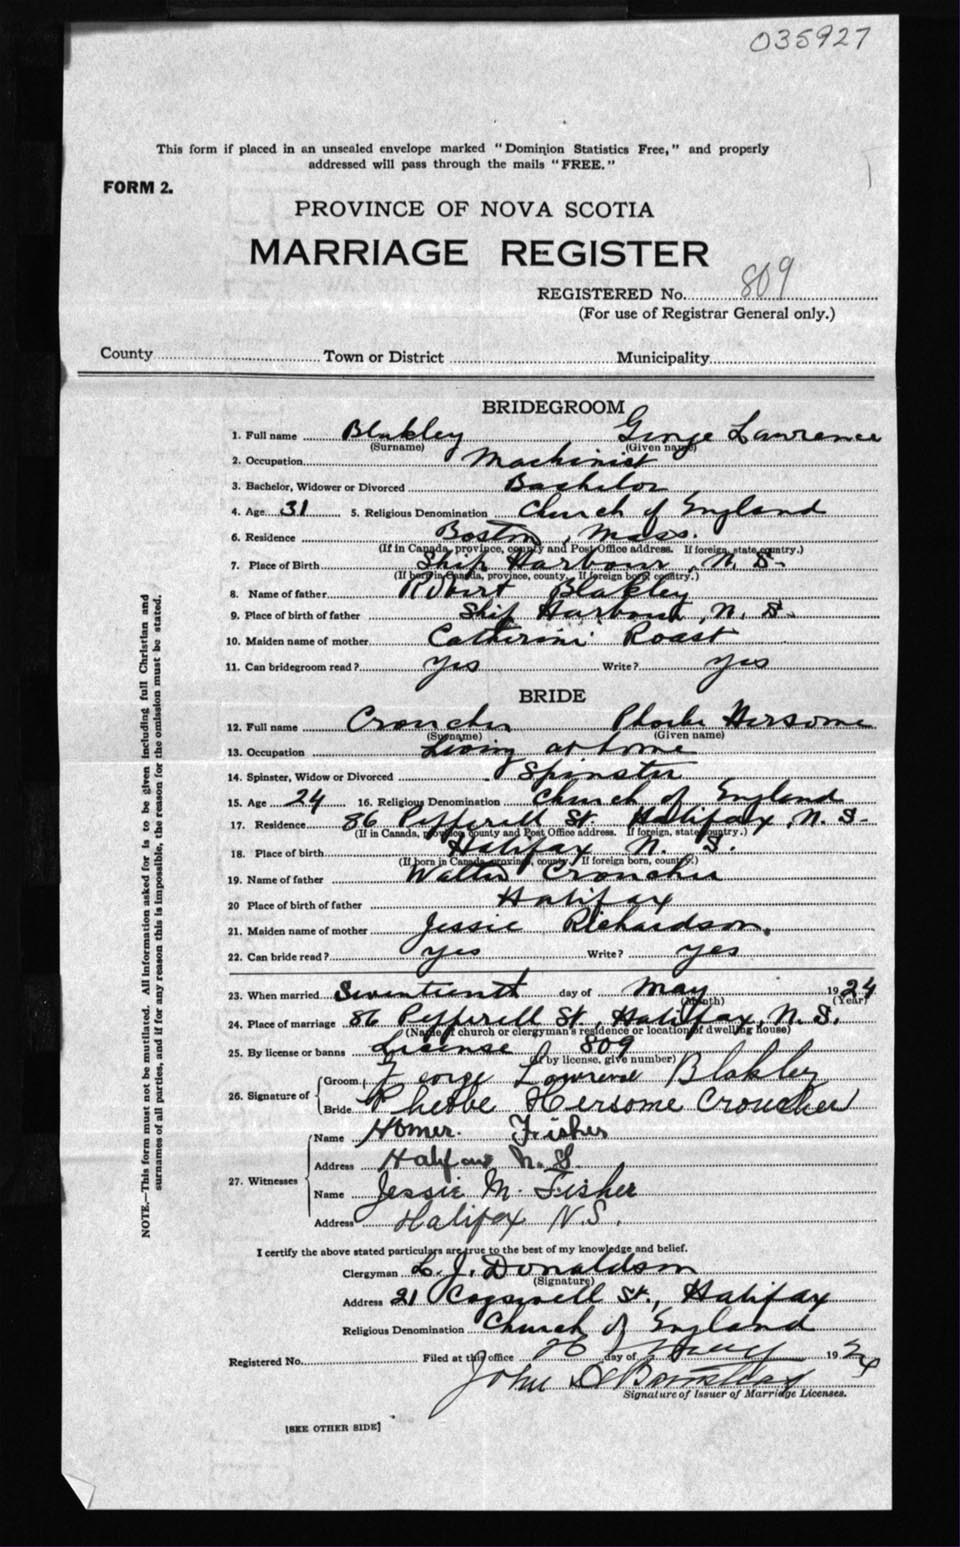 035927
This form if placed in an unsealed envelope marked "Dominion Statistics Free," and properly
addressed will pass through the mails "FREE."
FORM 2.
PROVINCE OF NOVA SCOTIA
MARRIAGE REGISTER
REGISTERED No. 809
(For use of Registrar General only.)
County Town or District Municipality
BRIDEGROOM
1. Full name Blakley George Lawrence
(Surname) (Given name)
2. Occupation Machinist
3. Bachelor, Widower or Divorced Bachelor
4. Age 31 5. Religious Denomination Church of England
6. Residence Boston, Mass.
(If in Canada, province, county and Post Office address. If foreign, state country.)
7. Place of Birth Ship Harbour, N. S.
(If born in Canada, province, county. If foreign born, country.)
8. Name of father Robert Blakley
9. Place of birth of father Ship Harbour, N. S.
10. Maiden name of mother Catherine Roast
11. Can bridegroom read? yes Write? yes
BRIDE
12. Full name Croucher Phoebe Hersome
(Surname) (Given name)
13. Occupation Living at home
14. Spinster, Widow or Divorced Spinster
15. Age 24 16. Religious Denomination Church of England
17. Residence 86 Pepperell St. Halifax, N. S.
(If in Canada, province county and Post Office address. If foreign, state country.)
18. Place of birth Halifax N. S.
(If born in Canada province, county. If foreign born, country.)
19. Name of father Walter Croucher
20 Place of birth of father Halifax
21. Maiden name of mother Jessie Richardson.
22. Can bride read? yes Write? yes
23. When married Seventeenth day of May 1924
(Month) (Year)
24. Place of marriage 86 Pepperell St., Halifax, N. S.
(Name of church or clergyman's residence or location of dwelling house)
25. By license or banns License 809
(If by license, give number)
26. Signature of Groom George Lawrence Blakley
Bride Phebe Hersome Croucher
27. Witnesses Name Homer Fisher
Address Halifax N.S.
Name Jessie M. Fisher
Address Halifax N.S.
I certify the above stated particulars are true to the best of my knowledge and belief.
Clergyman L. J. Donaldson
(Signature)
Address 21 Cogswell St., Halifax
Religious Denomination Church of England
Registered No. Filed at this office 26 day of May 1924
John
Signature of Issuer of Marriage Licenses.
[SEE OTHER SIDE]
NOTE.—This form must not be mutilated. All information asked for is to be given including full Christian and
surnames of all parties, and if for any reason this is impossible, the reason for the omission must be stated.